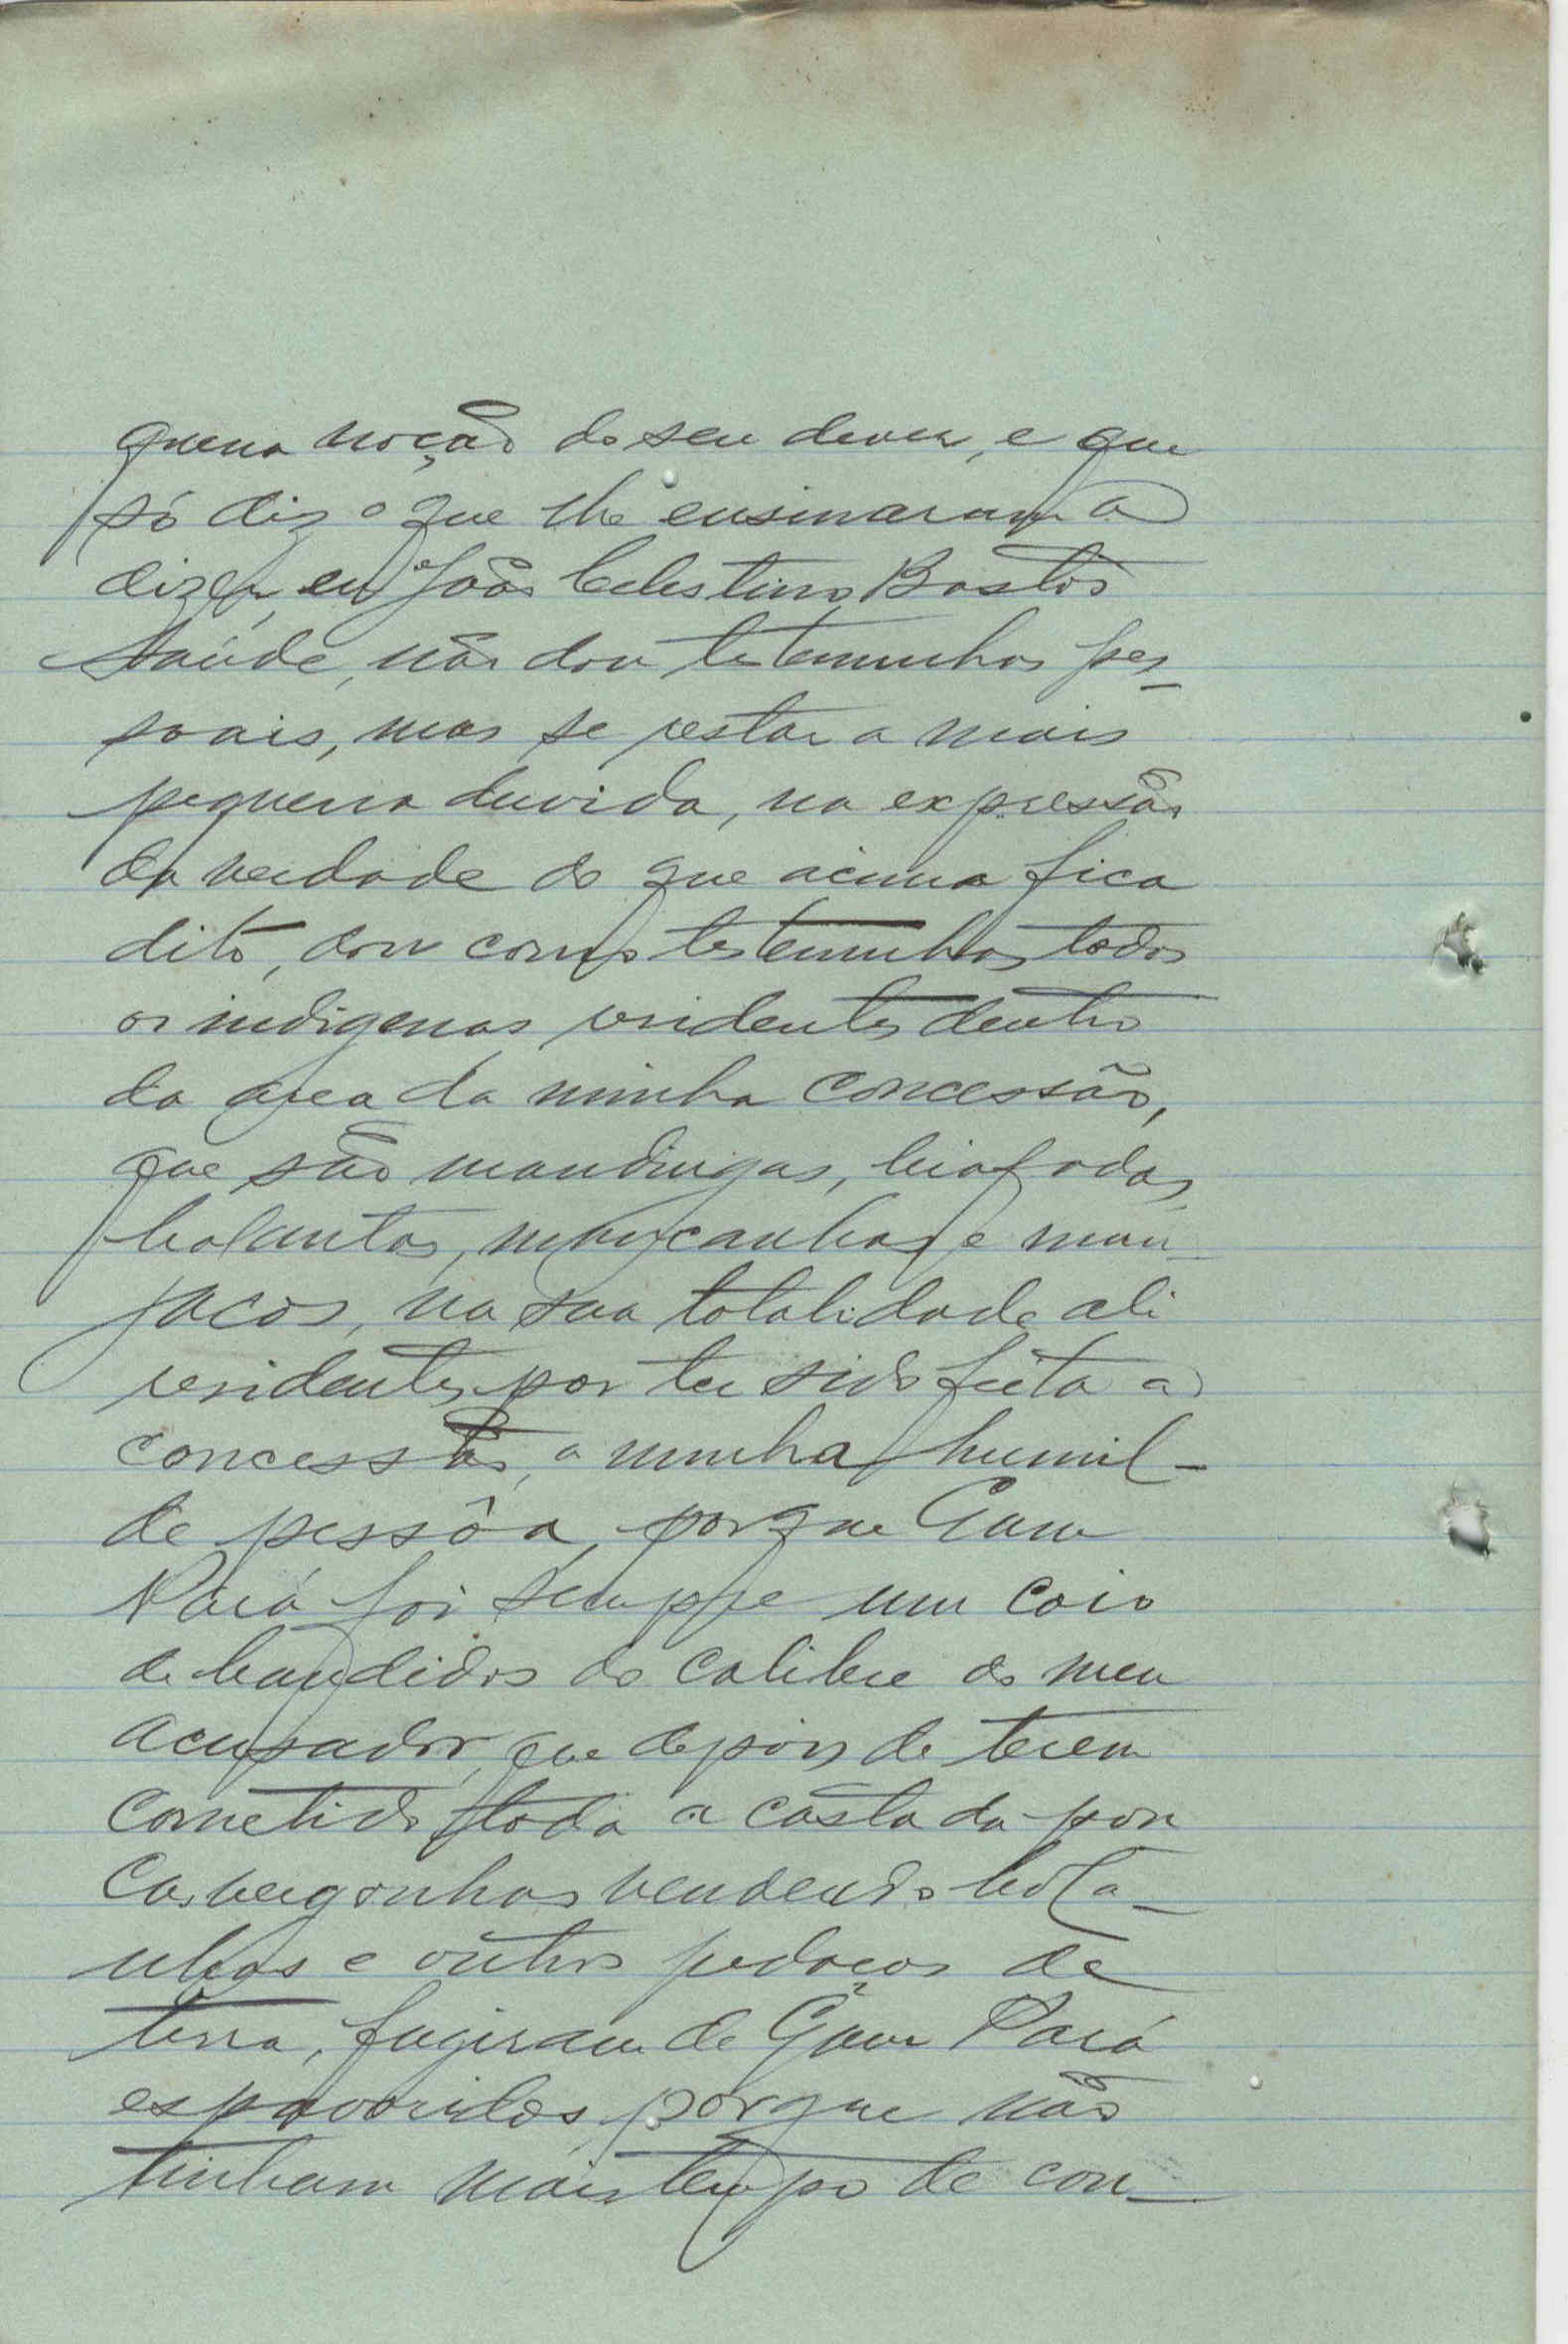 quena noção do seu dever, e que
só diz o que lhe ensinaram a
dizer, eu João Celestino Bastos
Saúde, não dou testemunhas pes-
soais, mas se restar a mais
pequena duvida, na expressão
da verdade do que acima fica
dito, dou como testemunhas todos
os indigenas residentes dentro
da area da minha concessão,
que são mandingas, biafadas,
balantas, mancanhas e man-
jacos, na sua totalidade ali
residentes por ter sido feita a
concessão, a minha humil-
de pessôa, porque Gam
Pará foi sempre um coio
de bandidos do calibre do meu
acusador, que depois de terem
cometido toda a casta da pou
cas vergonhas vendendo bola-
nhas e outros pedaços de
terra, fugiram de Gam Pará
espavoridos, porque não
tinham mais tempo de con-